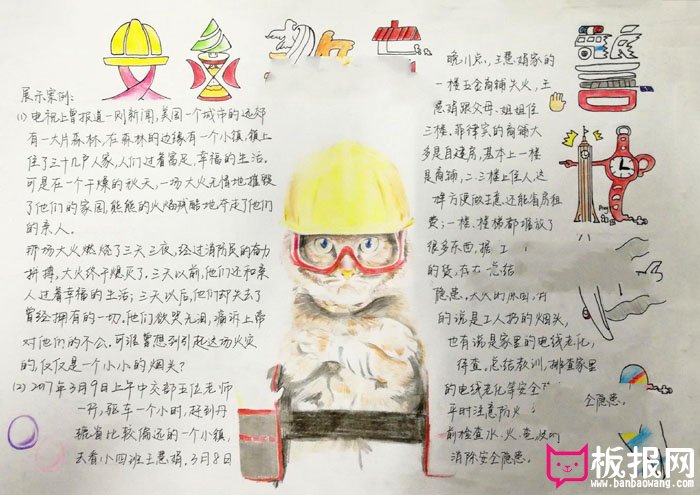 展示案例:
(1) 电视上曾报道一则新闻,美国一个城市的远郊
有一大片森林,在森林的边缘有一个小镇,镇上
住了三十几户人家,人们过着富足、幸福的生活。
可是在一个干燥的秋天,一场大火无情地摧毁
了他们的家园,熊熊的火焰残酷地夺走了他们
的亲人。
那场大火燃烧了三天三夜,经过消防员的奋力
拼搏,大火终于熄灭了,三天以前,他们还和亲
人过着幸福的生活;三天以后,他们却失去了
曾经拥有的一切。他们欲哭无泪,痛诉上帝
对他们的不公。可谁曾想到引起这场火灾
的,仅仅是一个小小的烟头?
(2) 2017年3月9日上午中交部五位老师
一行,驱车一个小时,赶到丹
辘省比较偏远的一个小镇,
去看小四班王慧娟,3月8日
晚川点,王慧娟家的
一楼五金商铺失火,王
慧娟跟父母、姐姐住
三楼。菲律宾的商铺大
多是自建房,基本上一楼
是商铺,二、三楼上住人,这
样方便做生意,还能省房租
费;一楼、楼梯都堆放了
很多东西,据 工
的货,存在 总结
隐患,大火的原因,有
的说是工人扔的烟头,
也有说是家里的电线老化,
侍查。总结教训,排查家里
的电线老化等安全 全隐患。
平时注意防火
前检查水、火、
消除安全隐患。
板报网
www.banbaowang.com